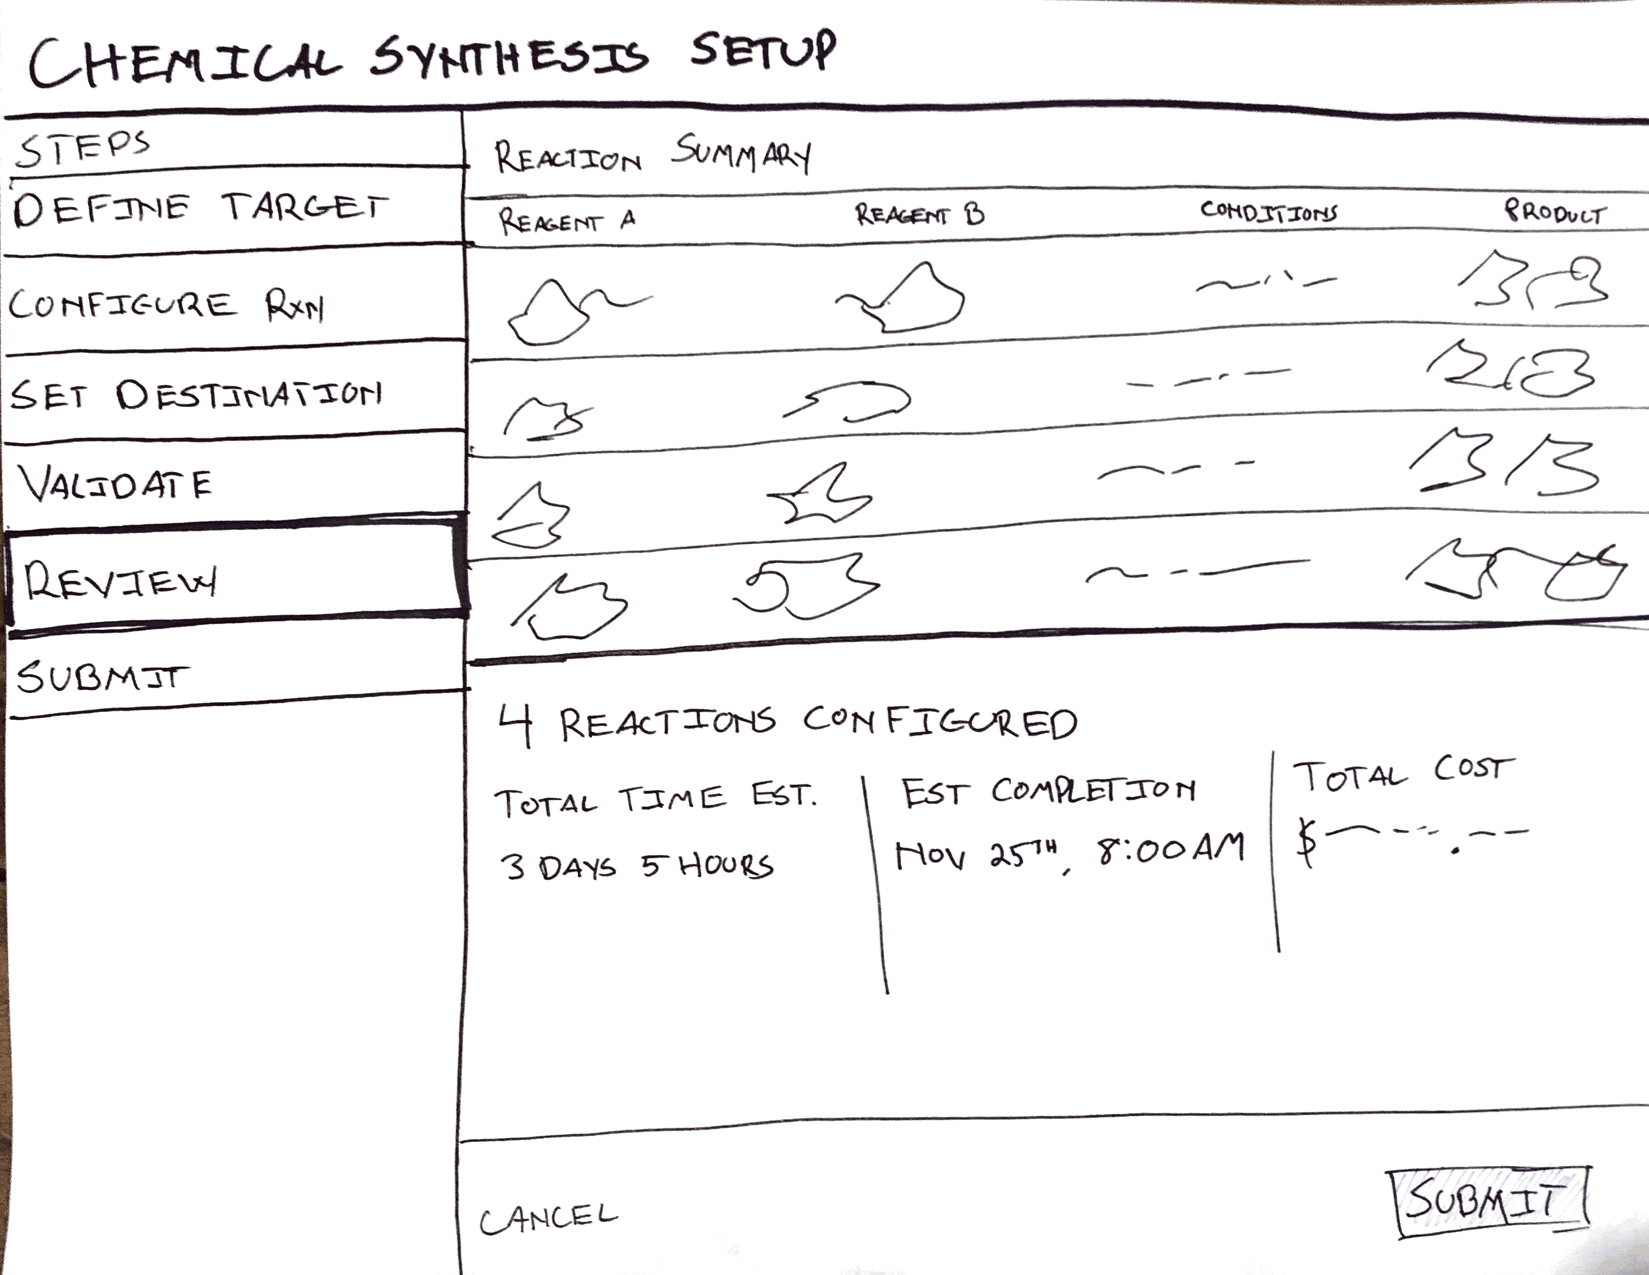 CHEMICAL SYNTHESIS SETUP
STEPS
DEFINE TARGET
CONFIGURE RXN
SET DESTINATION
VALIDATE
REVIEW
SUBMIT
REACTION SUMMARY
REAGENT A REAGENT B CONDITIONS PRODUCT
4 REACTIONS CONFIGURED
TOTAL TIME EST.
3 DAYS 5 HOURS
EST COMPLETION
NOV 25TH, 8:00AM
TOTAL COST
$
CANCEL
SUBMIT